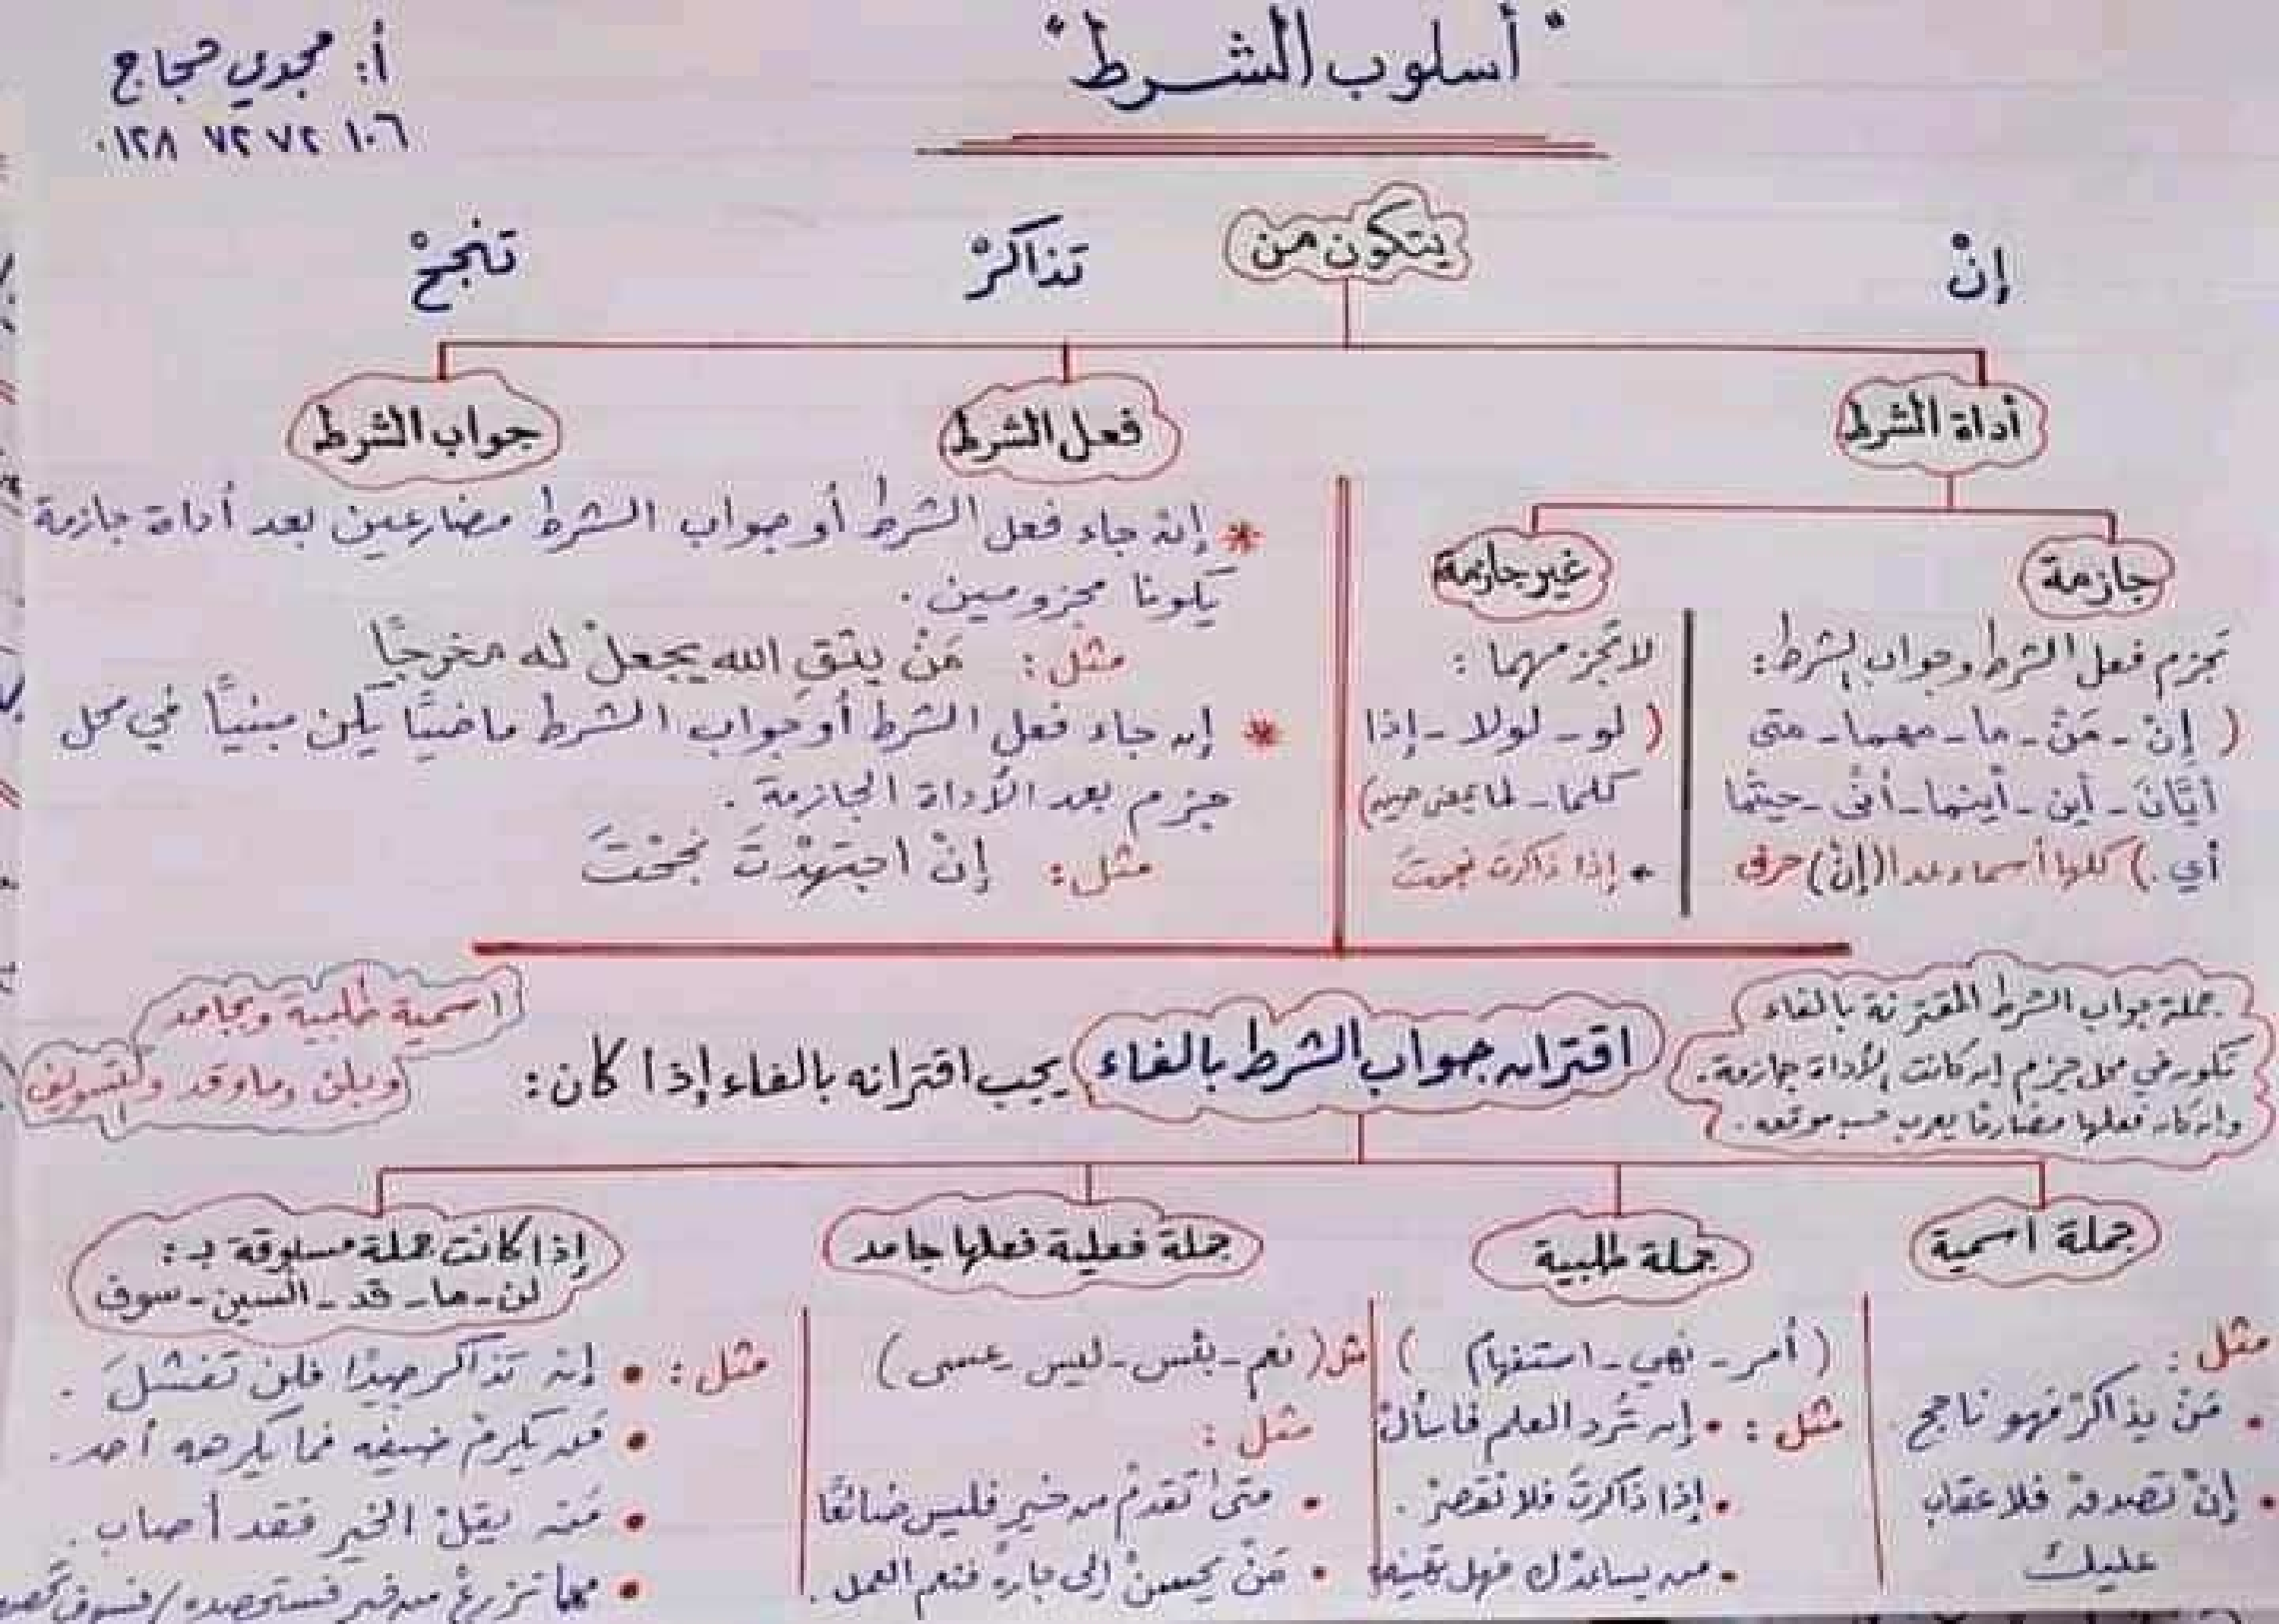 " أسلوب الشرط "
أ: مجدي حجاج
٠١٢٨ ٧٢ ٧٢ ١٠٦
يتكون من
إنْ
تذاكرْ
تنجحْ
أداة الشرط
فعل الشرط
جواب الشرط
جازمة
تجزم فعل الشرط وجواب الشرط:
( إنْ - مَنْ - ما - مهما - متى
أيَّانَ - أين - أينما - أنَّى - حيثما
أي . ) كلها أسماء عدا (إنْ) حرف
غير جازمة
لا تجزمهما :
( لو - لولا - إذا
كلما - لما بمعنى حين)
• إذا ذاكرتَ نجحتَ
* إن جاء فعل الشرط أو جواب الشرط مضارعين بعد أداة جازمة
يكونا مجزومين .
مثل : مَنْ يتقِ الله يجعلْ له مخرجًا
* إن جاء فعل الشرط أو جواب الشرط ماضيًا يكن مبنيًّا في محل
جزم بعد الأداة الجازمة .
مثل : إنْ اجتهدْتَ نجحْتَ
جملة جواب الشرط المقترنة بالفاء
تكون في محل جزم إن كانت الأداة جازمة .
وإن كان فعلها مضارعًا يعرب حسب موقعه .
اقتران جواب الشرط بالفاء
يجب اقترانه بالفاء إذا كان :
اسمية طلبية وبجامد
وبلن وما وقد والتسويف
جملة اسمية
مثل :
• مَنْ يذاكرْ فهو ناجح
• إنْ تصدقْ فلا عقاب
عليك
جملة طلبية
( أمر - نهي - استفهام )
مثل : • إن تُرد العلم فاسألْ
• إذا ذاكرتَ فلا تقصرْ .
• من يساعدْك فهل
جملة فعلية فعلها جامد
مثل ( نعم - بئس - ليس - عسى )
مثل :
• متى تقدمْ من خيرٍ فليس ضائعًا
• مَنْ يحسنْ إلى جارهِ فنعم العمل .
إذا كانت جملة مسبوقة بـ :
لن - ما - قد - السين - سوف
مثل : • إن تذاكر جيدًا فلن تفشلَ .
• مَن يكرمْ ضيفه فما يكرهه أحد .
• مَن يقلْ الخير فقد أصاب .
• مهما تزرعْ من خيرٍ فستحصده / فسوف